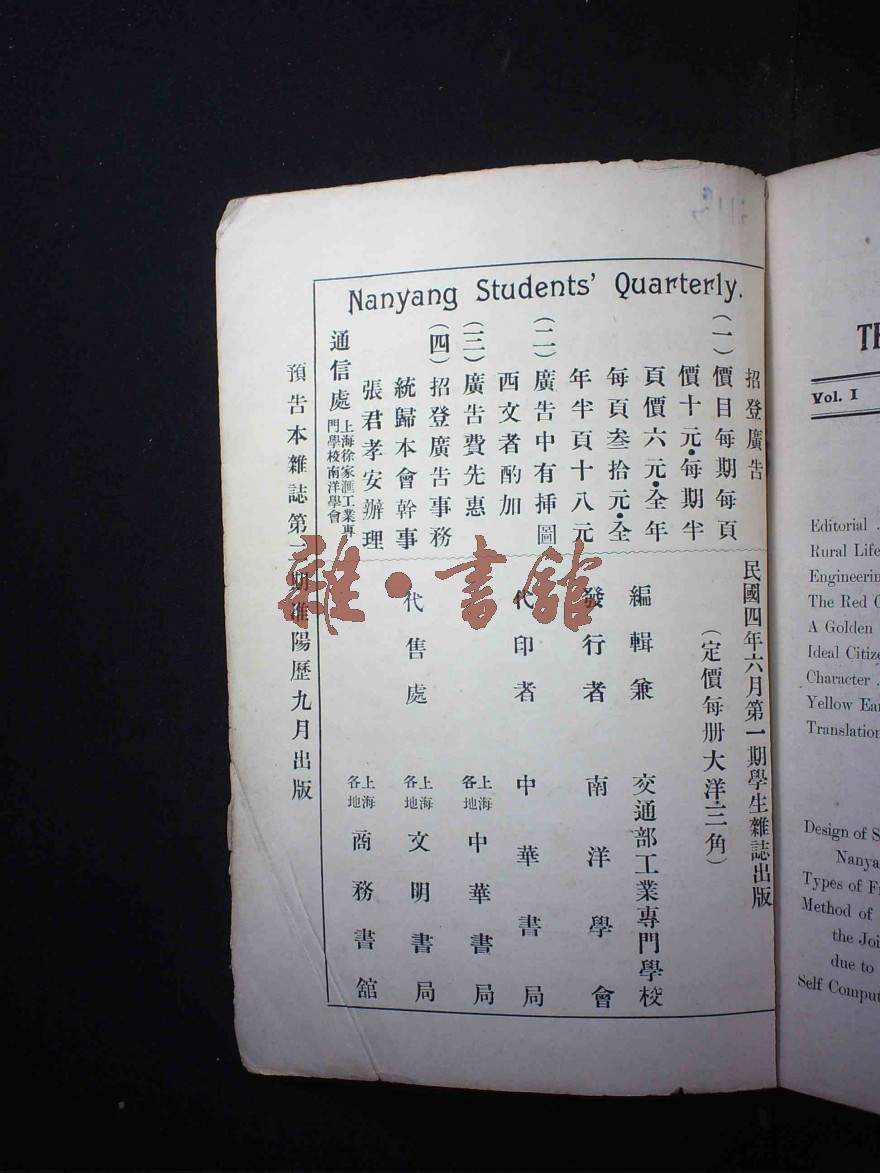 Nanyang Students' Quarterly.
招登廣告
（一）價目每期每頁
價十元•每期半
頁價六元•全年
每頁叁拾元•全
年半頁十八元
（二）廣告中有揷圖
西文者酌加
（三）廣告費先惠
（四）招登廣告事務
統歸本會幹事
張君孝安辦理
通信處 上海徐家滙工業專
門學校南洋學會
民國四年六月第一期學生雜誌出版
（定價每册大洋三角）
編輯兼 交通部工業專門學校
發行者 南洋學會
代印者 中華書局
上海
各地 中華書局
代售處 上海
各地 文明書局
上海
各地 商務書館
預告本雜誌第二期准陽歷九月出版
雜•書館
Vol. I
Editorial
Rural Life
Engineerin
The Red
A Golden
Ideal Citize
Character
Yellow Ea
Translation
Design of S
Nanya
Types of F
Method of
the Joi
due to
Self Comput